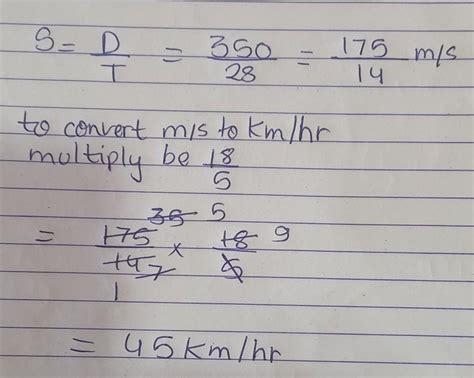 S = D/T = 350/28 = 175/14 m/s
to convert m/s to Km/hr
multiply be 18/5
35 5
= 175/14 × 18/5 9
7
1
= 45 Km/hr